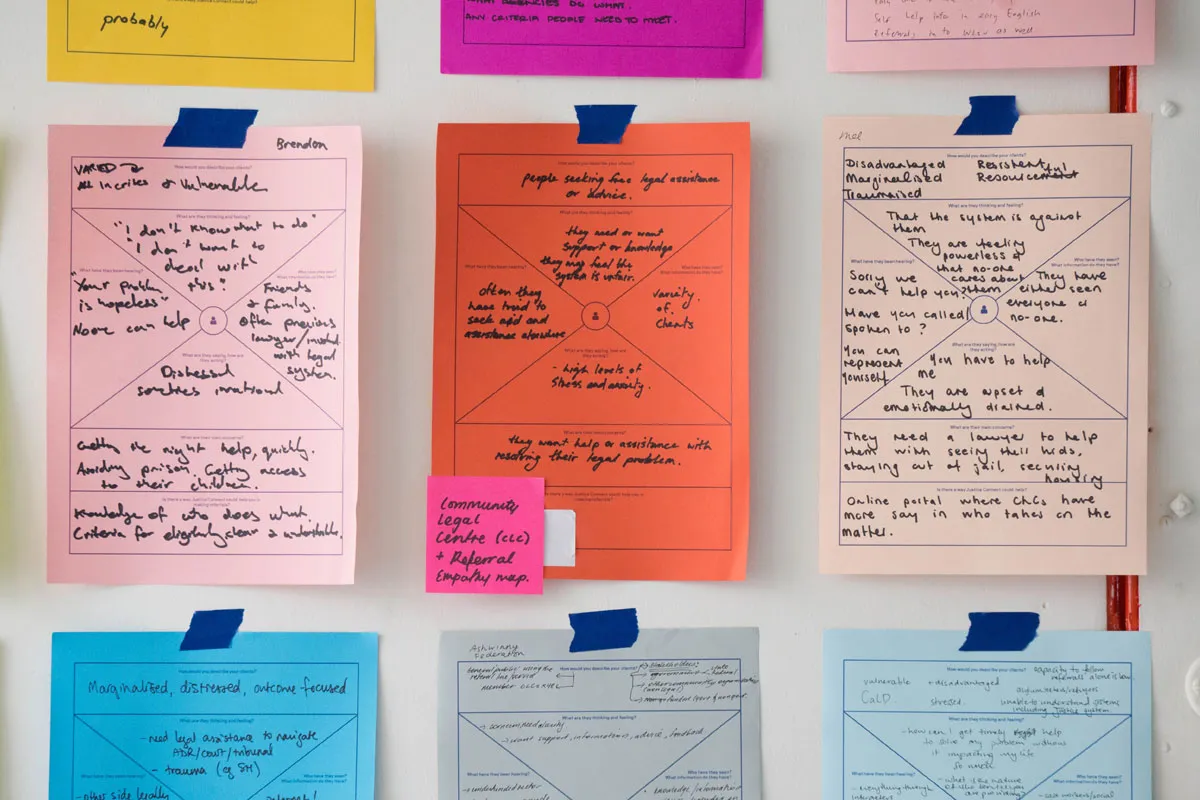 probably
WHAT AGENCIES DO WHAT.
ANY CRITERIA PEOPLE NEED TO MEET.
Self help info in easy English
Referrals in to work as well
Brendon
How would you describe your clients?
VARIED
All In crisis & Vulnerable
What are they thinking and feeling?
"I don't know what to do"
"I don't want to
deal with
this"
What have they been hearing?
"Your problem
is hopeless"
No one can help
Who have they seen?
What information do they have?
Friends
& family.
Often previous
lawyer/involved
with legal
system.
What are they saying, how are
they acting?
Distressed
sometimes irrational
What are their main concerns?
Getting the right help, quickly.
Avoiding prison. Getting access
to their children.
Is there a way Justice Connect could help you in
making referrals?
Knowledge of who does what
Criteria for eligibility clear & understandable.
How would you describe your clients?
people seeking free legal assistance
or advice.
What are they thinking and feeling?
they need or want
support or knowledge
they may feel the
system is unfair.
What have they been hearing?
often they
have tried to
seek aid and
assistance elsewhere
Who have they seen?
What information do they have?
variety
of
clients
What are they saying, how are
they acting?
- high levels of
stress and anxiety.
What are their main concerns?
they want help or assistance with
resolving their legal problem.
Community
Legal
Centre (CLC)
+ Referral
Empathy map.
Mel
How would you describe your clients?
Disadvantaged Resistent
Marginalised Resourceful
Traumatised
What are they thinking and feeling?
That the system is against
them
They are feeling
powerless &
that no-one
cares about
them
What have they been hearing?
Sorry we
can't help you?
Have you called/
spoken to?
You can
represent
yourself
Who have they seen?
What information do they have?
They have
either seen
everyone or
no-one.
What are they saying, how are
they acting?
You have to help
me
They are upset &
emotionally drained.
What are their main concerns?
They need a lawyer to help
them with seeing their kids,
staying out of jail, securing
housing
Is there a way Justice Connect could help?
Online portal where CLCs have
more say in who takes on the
matter.
How would you describe your clients?
Marginalised, distressed, outcome focused
What are they thinking and feeling?
- need legal assistance to navigate
ADR/court/tribunal
- trauma (eg SH)
What have they been hearing?
Who have they seen?
What information do they have?
- other side legally
Ashwinny
Federation
How would you describe your clients?
general public using the
referral line/service
member CLCs
Stakeholders:
What are they thinking and feeling?
→ want support, information, advice, feedback
What have they been hearing?
Who have they seen?
What information do they have?
How would you describe your clients?
vulnerable + disadvantaged
CaLD stressed
capacity to follow
referrals alone is low.
unable to understand systems
including justice system.
What are they thinking and feeling?
- how can I get timely help
to solve my problem without
it impacting my life
so much
What have they been hearing?
Who have they seen?
What information do they have?
- everything through